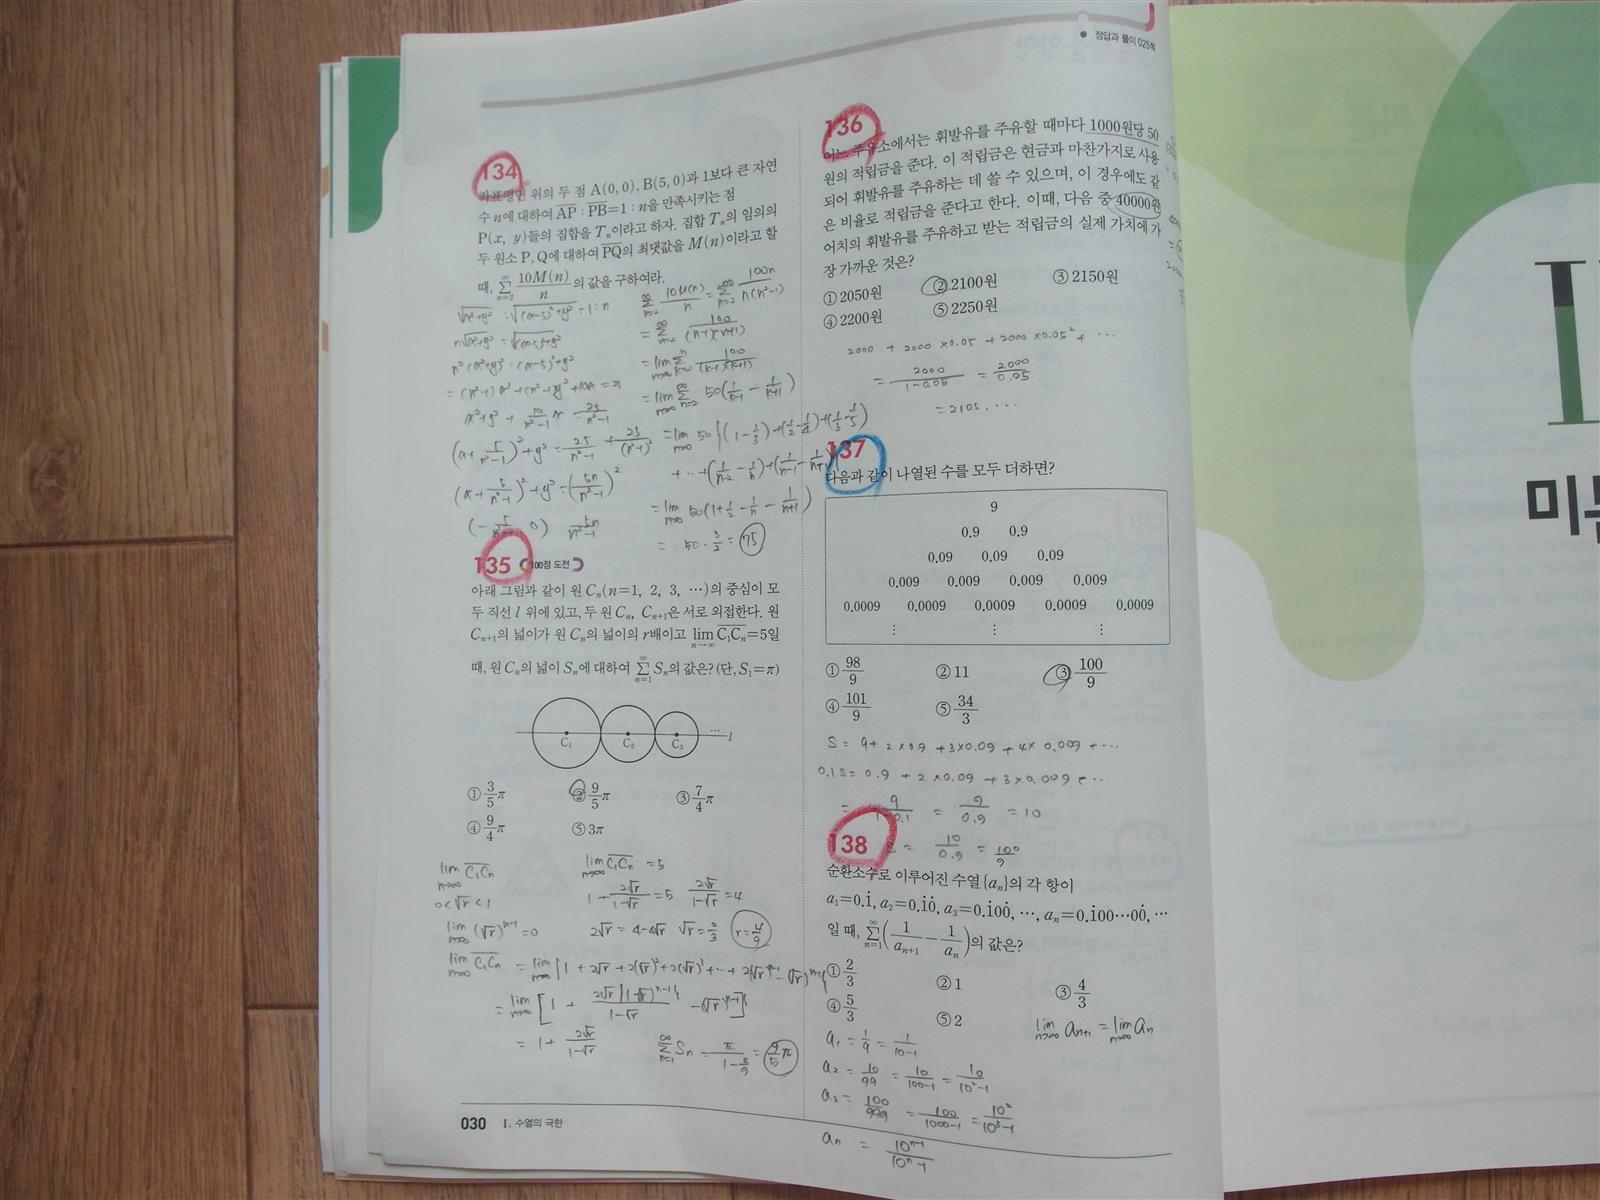 정답과 풀이 025쪽
134
좌표평면 위의 두 점 A(0, 0), B(5, 0)과 1보다 큰 자연
수 n에 대하여 AP : PB=1 : n을 만족시키는 점
P(x, y)들의 집합을 Tₙ이라고 하자. 집합 Tₙ의 임의의
두 원소 P, Q에 대하여 PQ의 최댓값을 M(n)이라고 할
때, ∑_{n=2}^{∞} 10M(n)/n 의 값을 구하여라.
√x²+y² : √(x-5)²+y² = 1 : n
n√x²+y² = √(x-5)²+y²
n²(x²+y²) = (x-5)²+y²
x²+y² + 10/(n²-1) x = 25/(n²-1)
(x+5/(n²-1))²+y² = 25/(n²-1) + 25/(n²-1)²
(x+5/(n²-1))²+y² = (5n/(n²-1))²
∑_{n=2}^{∞} 10M(n)/n = ∑_{n=2}^{∞} 100n/n(n²-1)
= ∑_{n=2}^{∞} 100/(n-1)(n+1)
= lim_{n→∞} ∑_{k=2}^{n} 100/(k-1)(k+1)
= lim_{n→∞} ∑_{n=2}^{∞} 50(1/(k-1) - 1/(k+1))
= lim_{n→∞} 50{(1-1/3)+(1/2-1/4)+(1/3-1/5)
+ ⋯ +(1/(n-2) - 1/n)+(1/(n-1) - 1/(n+1))
= lim_{n→∞} 50(1+1/2-1/n-1/(n+1))
= 50 · 3/2 = 75
135 100점 도전
아래 그림과 같이 원 Cₙ(n=1, 2, 3, ⋯)의 중심이 모
두 직선 l 위에 있고, 두 원 Cₙ, Cₙ₊₁은 서로 외접한다. 원
Cₙ₊₁의 넓이가 원 Cₙ의 넓이의 r배이고 lim_{n→∞} C₁Cₙ=5일
때, 원 Cₙ의 넓이 Sₙ에 대하여 ∑_{n=1}^{∞} Sₙ의 값은? (단, S₁=π)
C₁ C₂ C₃ ⋯ l
① 3/5 π ② 9/5 π ③ 7/4 π
④ 9/4 π ⑤ 3π
lim_{n→∞} C₁Cₙ
0<√r<1
lim_{n→∞} (√r)ⁿ⁻¹=0
lim_{n→∞} C₁Cₙ = 5
1+2√r/(1-√r)=5 2√r/(1-√r)=4
2√r = 4-4√r √r=2/3 r=4/9
lim_{n→∞} C₁Cₙ = lim_{n→∞} {1+2√r+2(√r)²+2(√r)³+⋯+2(√r)ⁿ⁻¹-(√r)ⁿ⁻¹}
= lim_{n→∞} [1 + 2√r{1-(√r)ⁿ⁻¹}/(1-√r) -(√r)ⁿ⁻¹]
= 1+ 2√r/(1-√r)
∑_{n=1}^{∞} Sₙ = π/(1-4/9) = 9/5 π
030 Ⅰ. 수열의 극한
136
어느 주유소에서는 휘발유를 주유할 때마다 1000원당 50
원의 적립금을 준다. 이 적립금은 현금과 마찬가지로 사용
되어 휘발유를 주유하는 데 쓸 수 있으며, 이 경우에도 같
은 비율로 적립금을 준다고 한다. 이때, 다음 중 40000원
어치의 휘발유를 주유하고 받는 적립금의 실제 가치에 가
장 가까운 것은?
① 2050원 ② 2100원 ③ 2150원
④ 2200원 ⑤ 2250원
2000 + 2000×0.05 + 2000×0.05² + ⋯
= 2000/(1-0.05) = 2000/0.05
= 2105. ⋯
137
다음과 같이 나열된 수를 모두 더하면?
9
0.9 0.9
0.09 0.09 0.09
0.009 0.009 0.009 0.009
0.0009 0.0009 0.0009 0.0009 0.0009
⋮ ⋮ ⋮
① 98/9 ② 11 ③ 100/9
④ 101/9 ⑤ 34/3
S = 9+ 2×0.9 +3×0.09 +4×0.009 +⋯
0.1S = 0.9 + 2×0.09 +3×0.009 +⋯
= 9/(1-0.1) = 9/0.9 = 10
= 10/0.9 = 100/9
138
순환소수로 이루어진 수열 {aₙ}의 각 항이
a₁=0.1̇, a₂=0.1̇0̇, a₃=0.1̇00̇, ⋯, aₙ=0.1̇00⋯00̇, ⋯
일 때, ∑_{n=1}^{∞} (1/aₙ₊₁ - 1/aₙ)의 값은?
① 2/3 ② 1 ③ 4/3
④ 5/3 ⑤ 2
lim_{n→∞} aₙ₊₁ = lim_{n→∞} aₙ
a₁ = 1/9 = 1/(10-1)
a₂ = 10/99 = 10/(100-1) = 10/(10²-1)
a₃ = 100/999 = 100/(1000-1) = 10²/(10³-1)
aₙ = 10ⁿ⁻¹/(10ⁿ-1)